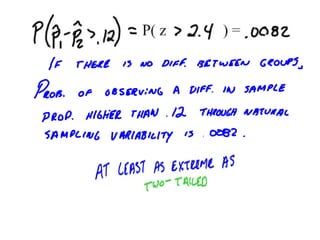 P(p̂₁-p̂₂>.12) = P( z > 2.4 ) = .0082
IF THERE IS NO DIFF. BETWEEN GROUPS,
PROB. OF OBSERVING A DIFF. IN SAMPLE
PROP. HIGHER THAN .12 THROUGH NATURAL
SAMPLING VARIABILITY IS .0082.
AT LEAST AS EXTREME AS
TWO-TAILED